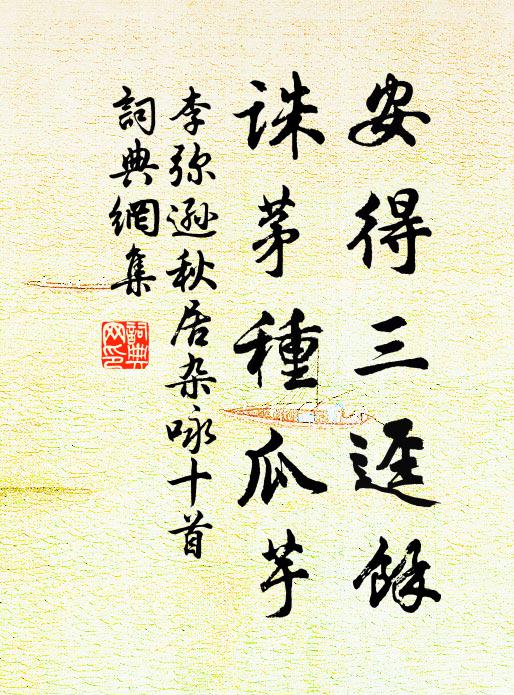 安得三逕餘
誅茅種瓜芋
李弥遜秋居杂咏十首
詞典網集
詞典网印